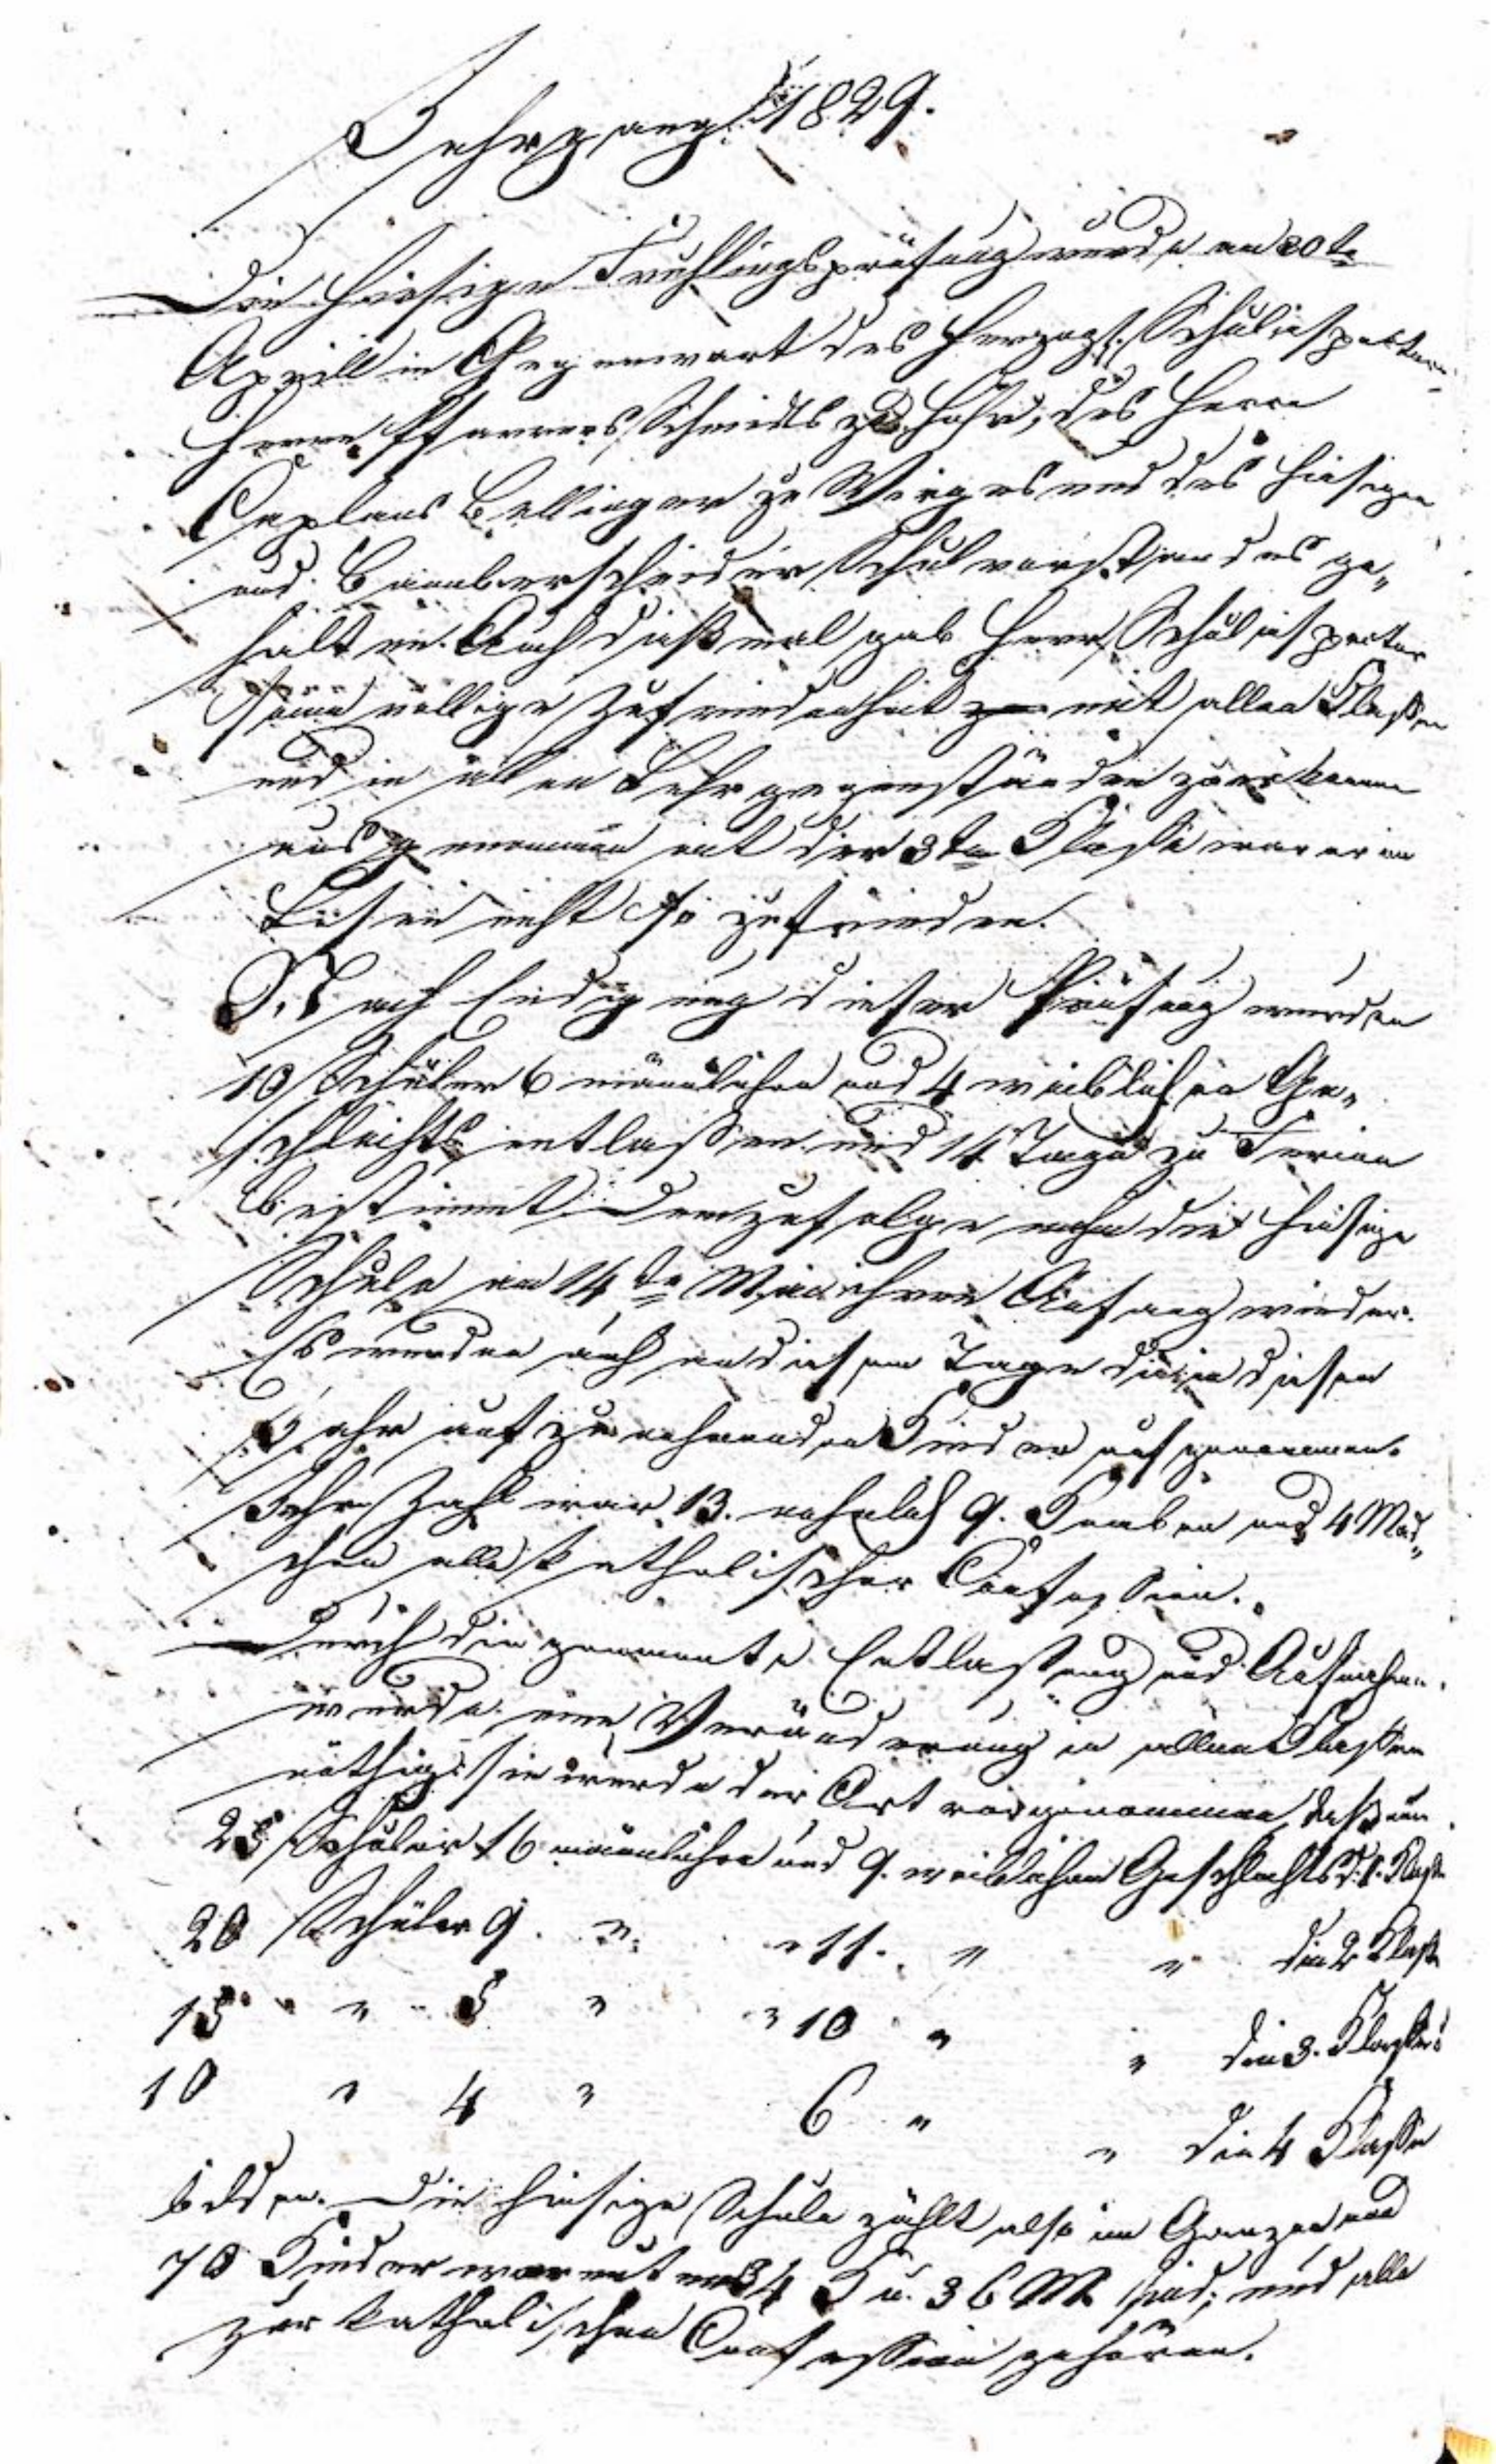 Jahrgang 1829.
Die hiesige Frühlingsprüfung wurde am 30te
Aprill in Gegenwart des Herzogl. Schulinspectors
Herrn Pfarrers Schmidts zu Höhr, des Herrn
Caplans Bellinger zu Wirges und des hiesigen
und Bannberscheider Schulvorstandes ge„
halten. Auch dießmal gab Herr Schulinspector
seine völlige Zufriedenheit mit allen Klaßen
und in allen Lehrgegenständen zu erkennen
ausgenommen mit der 3ten Klasse war er im
Lesen nicht so zufrieden.
Nach Endigung dieser Prüfung wurden
10 Schüler 6 männlichen und 4 weiblichen Ge„
schlechts entlaßen und 14 Tage zu Ferien
bestimmt. Demzufolge nahm die hiesige
Schule am 14te Mai ihren Anfang wieder.
Es wurden auch an diesem Tage die in diesem
Jahr aufzunehmenden Kinder aufgenommen.
Ihre Zahl war 13. nehmlich 9. Knaben und 4 Mäd„
chen alle katholischer Confession.
Durch die genannte Entlaßung und Aufnahme
wurde eine Veränderung in allen Klaßen
nöthig; sie wurde der Art vorgenommen, daß nun
25 Schüler 16 männlichen und 9. weiblichen Geschlechts d. 1. Klaße
20 Schüler 9. „ „ 11. „ „ die 2 Klaße
15 „ 5 „ „ 10 „ „ die 3. Klaße
10 „ 4 „ 6 „ „ die 4 Klaße
bilden. Die hiesige Schule zählt also im Ganzen
70 Kinder worunter 34 K u. 36 M sind; und alle
zur katholischen Confession gehören.